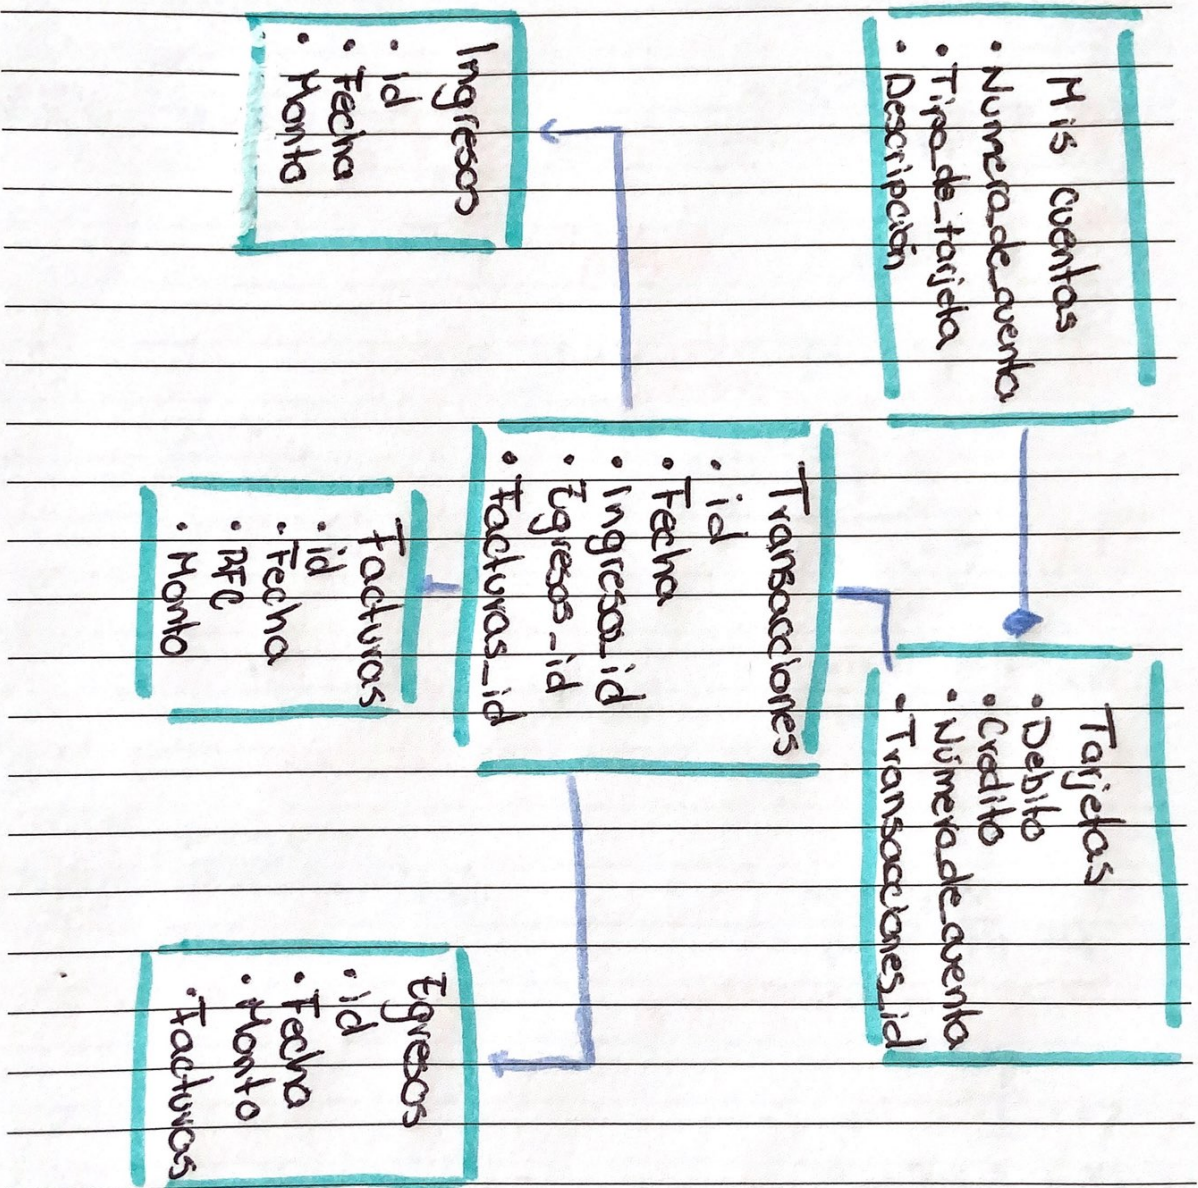 Mis cuentas
• Numero_de_cuenta
• Tipo_de_tarjeta
• Descripción
Tarjetas
• Debito
• Credito
• Número_de_cuenta
• Transacciones_id
Transacciones
• id
• Fecha
• Ingresos_id
• Egresos_id
• Facturas_id
Ingresos
• id
• Fecha
• Monto
Facturas
• id
• Fecha
• RFC
• Monto
Egresos
• id
• Fecha
• Monto
• Facturas